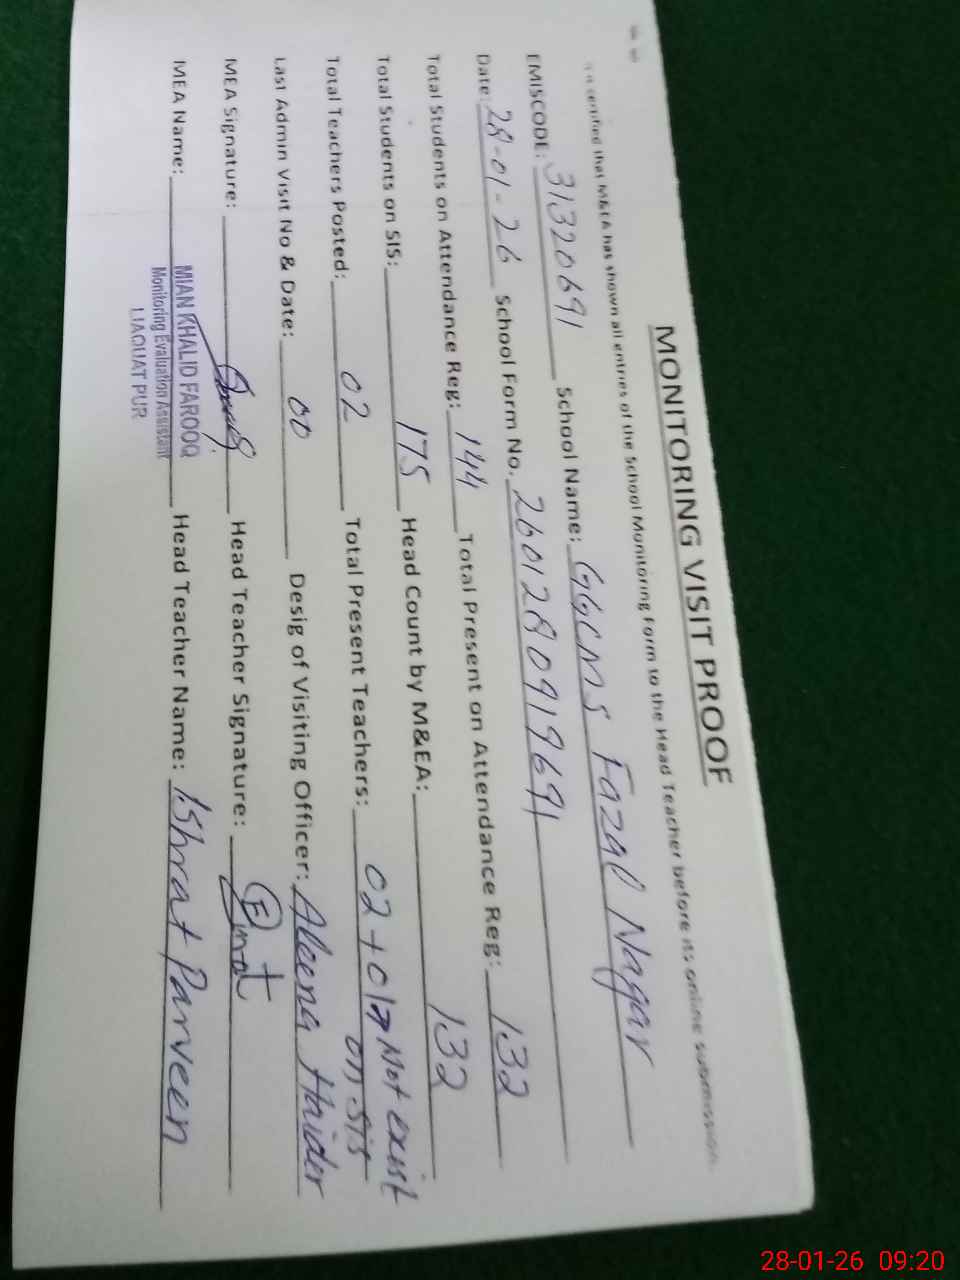 MONITORING VISIT PROOF
It is certified that M&EA has shown all entries of the School Monitoring Form to the Head Teacher before its online submission.
EMISCODE: 31320691 School Name: GGCMS Fazal Nagar
Date: 28-01-26 School Form No. 2601280919691
Total Students on Attendance Reg: 144 Total Present on Attendance Reg: 132
Total Students on SIS: 175 Head Count by M&EA: 132
Total Teachers Posted: 02 Total Present Teachers: 02 + 01 → Not exist on SIS
Last Admin Visit No & Date: 00 Desig of Visiting Officer: Aleena Haider
MEA Signature: Head Teacher Signature:
MEA Name: MIAN KHALID FAROOQ Head Teacher Name: Ishrat Parveen
Monitoring Evaluation Assistant
LIAQUAT PUR
28-01-26 09:20